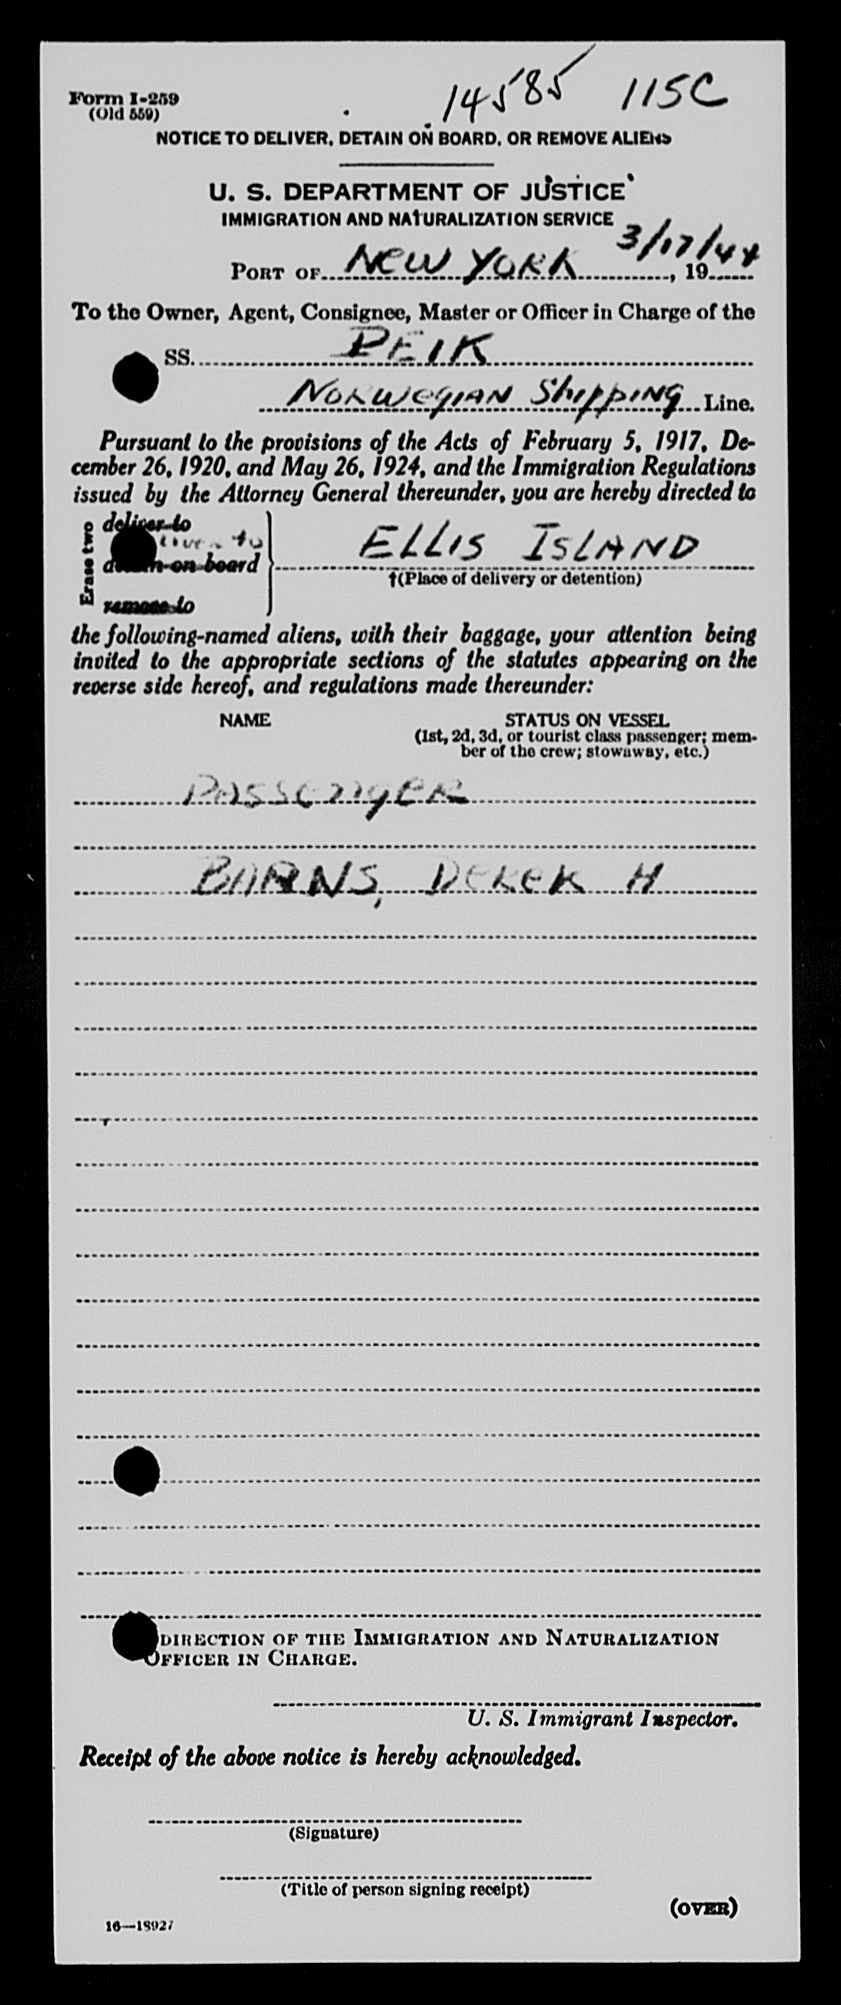 14585 115C
Form I-259
(Old 559)
NOTICE TO DELIVER, DETAIN ON BOARD, OR REMOVE ALIENS
U. S. DEPARTMENT OF JUSTICE
IMMIGRATION AND NATURALIZATION SERVICE
PORT OF NEW YORK, 19 3/17/44
To the Owner, Agent, Consignee, Master or Officer in Charge of the
SS. PEIK
NORWEGIAN Shipping Line.
Pursuant to the provisions of the Acts of February 5, 1917, De-
cember 26, 1920, and May 26, 1924, and the Immigration Regulations
issued by the Attorney General thereunder, you are hereby directed to
Erase two
deliver to
detain on board
remove to
ELLIS ISLAND
†(Place of delivery or detention)
the following-named aliens, with their baggage, your attention being
invited to the appropriate sections of the statutes appearing on the
reverse side hereof, and regulations made thereunder:
NAME STATUS ON VESSEL
(1st, 2d, 3d, or tourist class passenger; mem-
ber of the crew; stowaway, etc.)
PASSENGER
BARNS, DEREK H
DIRECTION OF THE IMMIGRATION AND NATURALIZATION
OFFICER IN CHARGE.
U. S. Immigrant Inspector.
Receipt of the above notice is hereby acknowledged.
(Signature)
(Title of person signing receipt)
(OVER)
16—18927